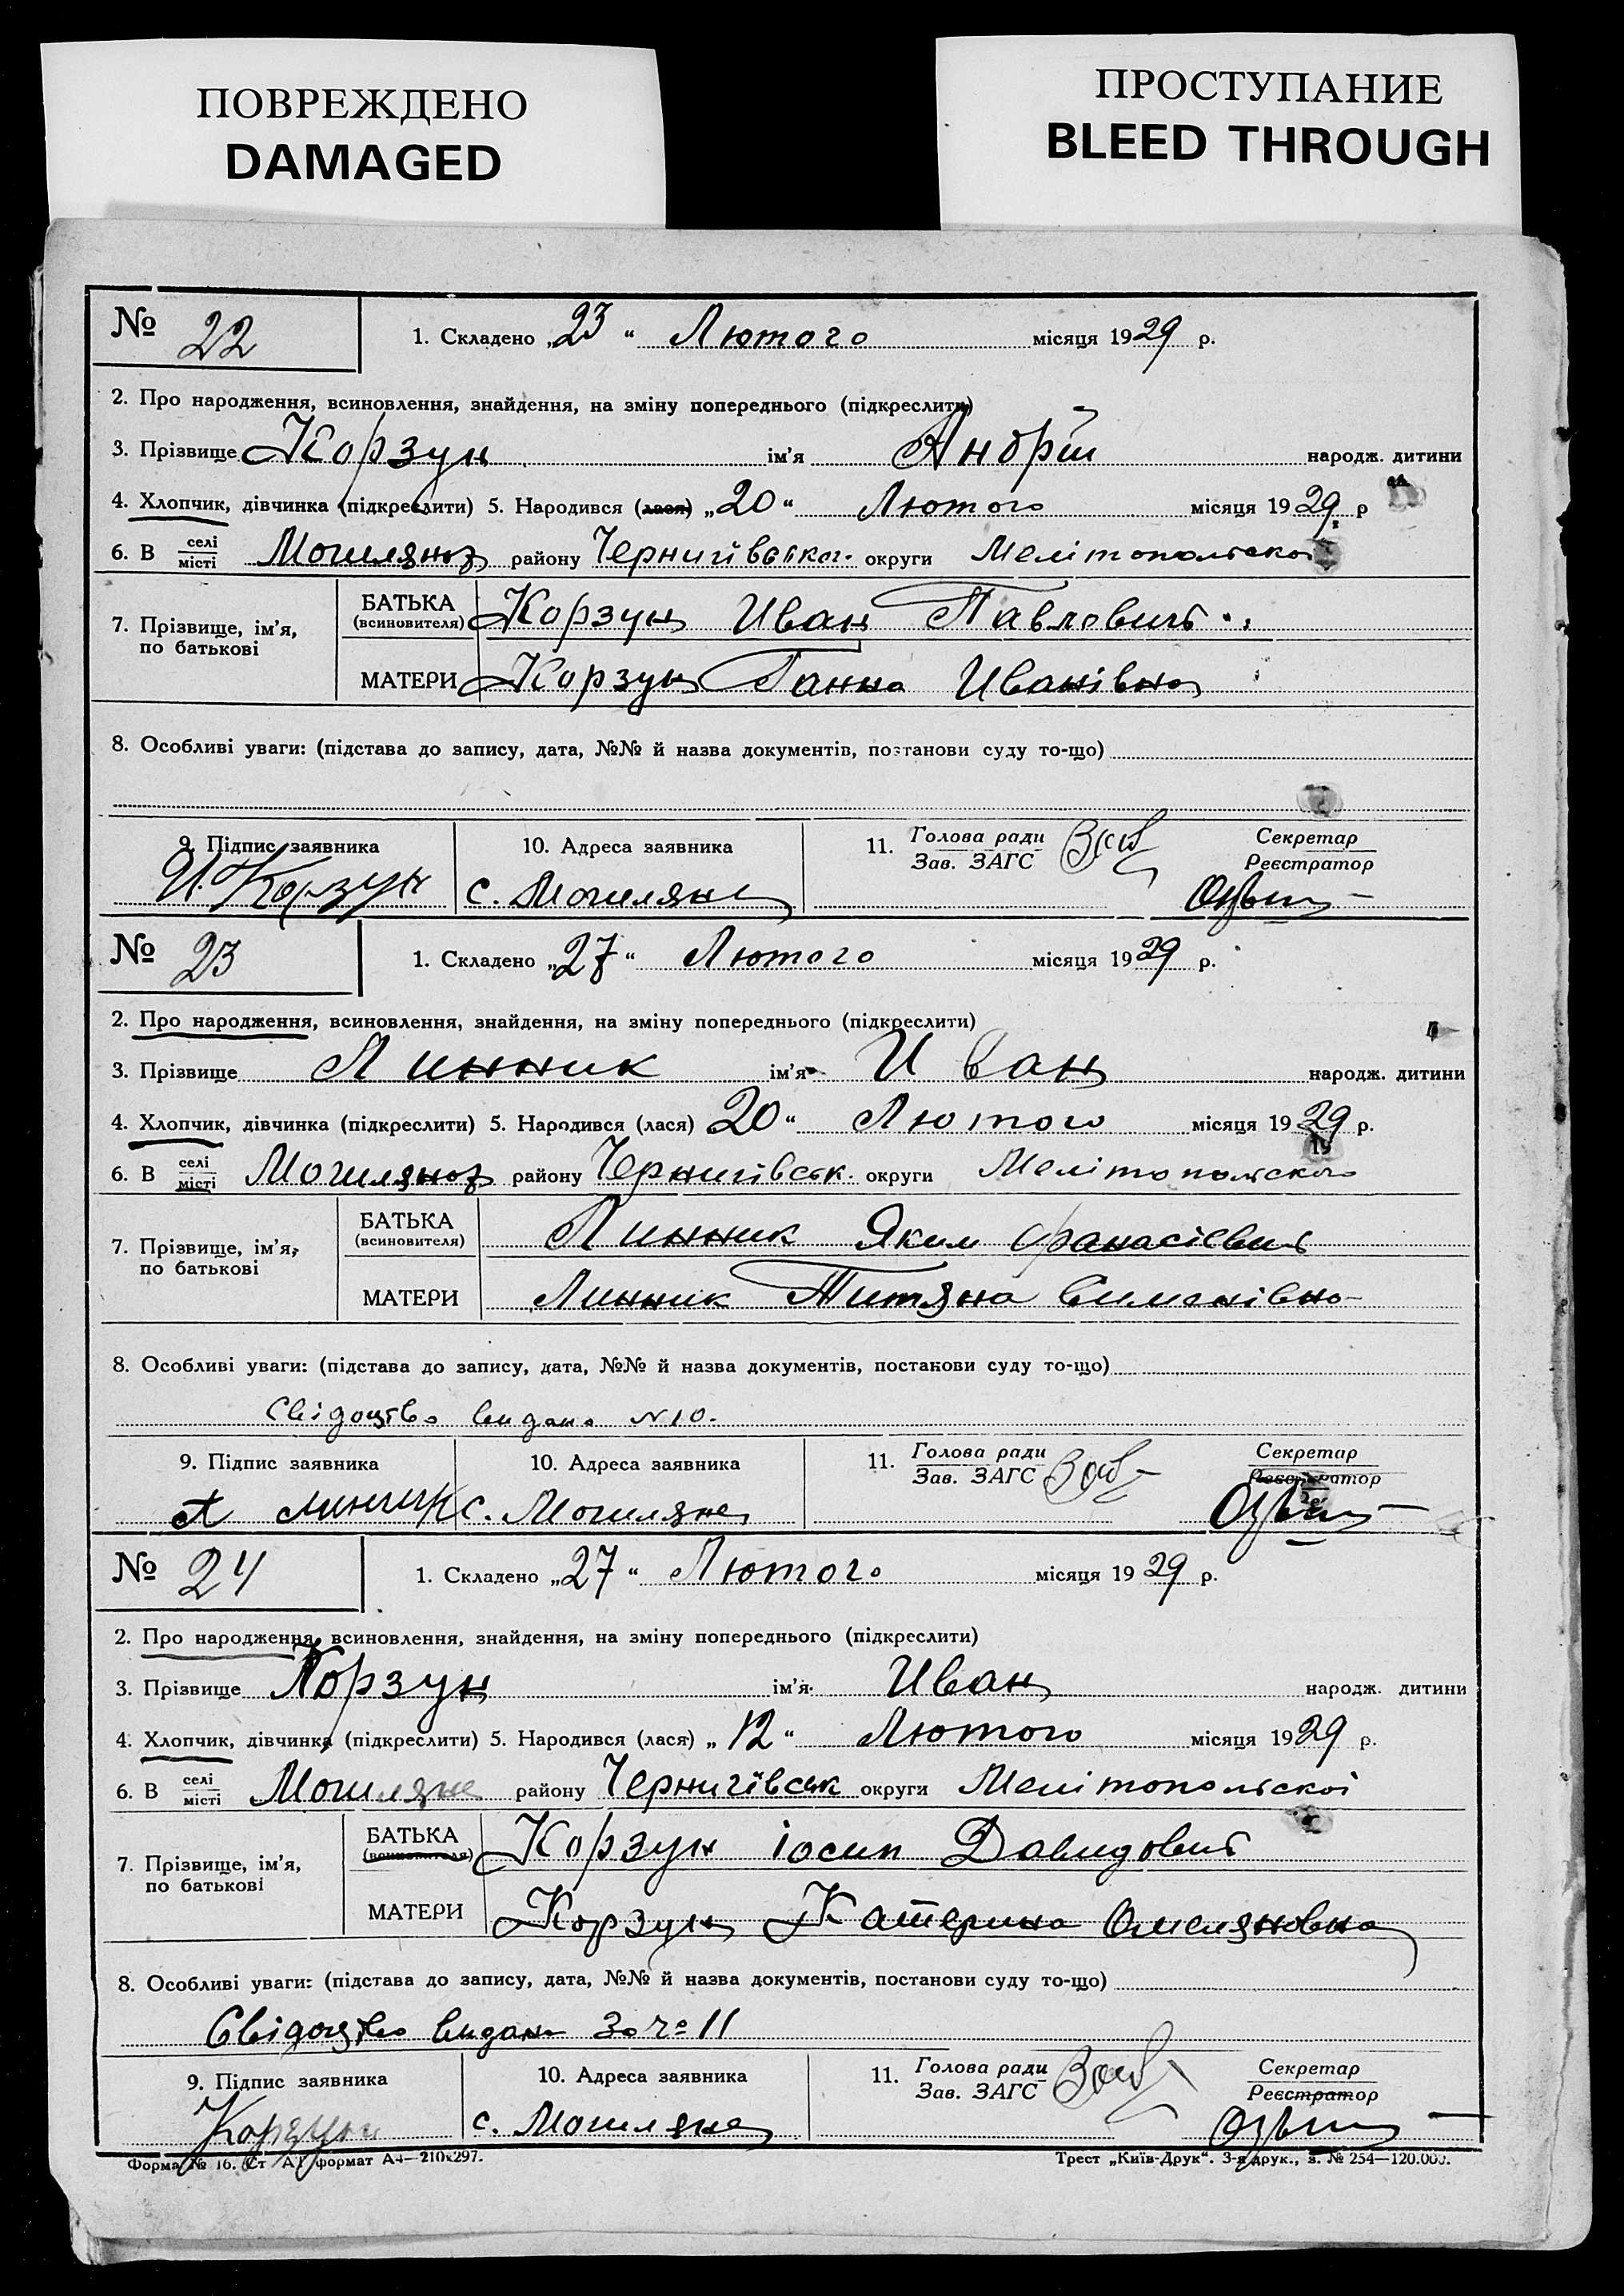 ПОВРЕЖДЕНО
DAMAGED
ПРОСТУПАНИЕ
BLEED THROUGH
№ 22 1. Складено „23“ Лютого місяця 1929 р.
2. Про народження, всиновлення, знайдення, на зміну попереднього (підкреслити)
3. Прізвище Корзун ім'я Андрій народж. дитини
4. Хлопчик, дівчинка (підкреслити) 5. Народився (лася) „20“ Лютого місяця 1929 р
6. В селі місті Могиляноз району Чернигівськог. округи Мелітопольской
7. Прізвище, ім'я, по батькові
БАТЬКА (всиновителя) Корзун Иван Павлович
МАТЕРИ Корзун Ганна Иванівна
8. Особливі уваги: (підстава до запису, дата, №№ й назва документів, постанови суду то-що)
9. Підпис заявника 10. Адреса заявника 11. Голова ради Зав. ЗАГС Секретар Реєстратор
И. Корзун с. Могиляне
№ 23 1. Складено „27“ Лютого місяця 1929 р.
2. Про народження, всиновлення, знайдення, на зміну попереднього (підкреслити)
3. Прізвище Линник ім'я Иван народж. дитини
4. Хлопчик, дівчинка (підкреслити) 5. Народився (лася) 20“ Лютого місяця 1929 р.
6. В селі місті Могиляноз району Чернигівськ. округи Мелітопольского
7. Прізвище, ім'я, по батькові
БАТЬКА (всиновителя) Линник Яким Офанасієвич
МАТЕРИ Линник Титяна Симонівна
8. Особливі уваги: (підстава до запису, дата, №№ й назва документів, постанови суду то-що)
Свідоцтво видано N 10.
9. Підпис заявника 10. Адреса заявника 11. Голова ради Зав. ЗАГС Секретар Реєстратор
Линник с. Могиляне
№ 24 1. Складено „27“ Лютого місяця 1929 р.
2. Про народження, всиновлення, знайдення, на зміну попереднього (підкреслити)
3. Прізвище Корзун ім'я Иван народж. дитини
4. Хлопчик, дівчинка (підкреслити) 5. Народився (лася) „12“ Лютого місяця 1929 р.
6. В селі місті Могиляне району Чернигівськ округи Мелітопольскоі
7. Прізвище, ім'я, по батькові
БАТЬКА (всиновителя) Корзун іосип Давидович
МАТЕРИ Корзун Катерина Омеляновна
8. Особливі уваги: (підстава до запису, дата, №№ й назва документів, постанови суду то-що)
Свідоцтво видано За № 11
9. Підпис заявника 10. Адреса заявника 11. Голова ради Зав. ЗАГС Секретар Реєстратор
Корзун с. Могиляне
Форма № 16. Ст А4 формат А4—210х297. Трест „Київ-Друк“. 3-я друк., з. № 254—120.000.